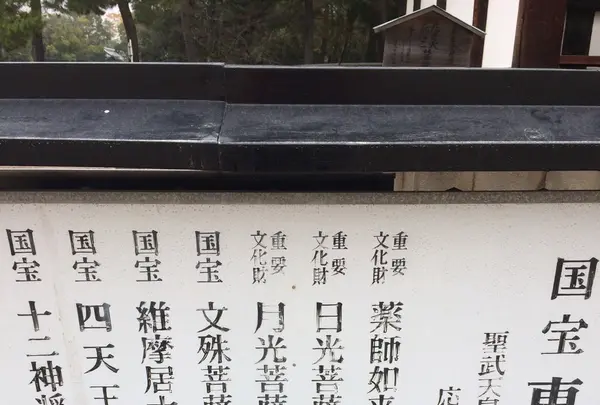 国宝 東
聖武天皇
重要文化財 薬師如来
重要文化財 日光菩薩
重要文化財 月光菩薩
国宝 文殊菩薩
国宝 維摩居士
国宝 四天王
国宝 十二神将